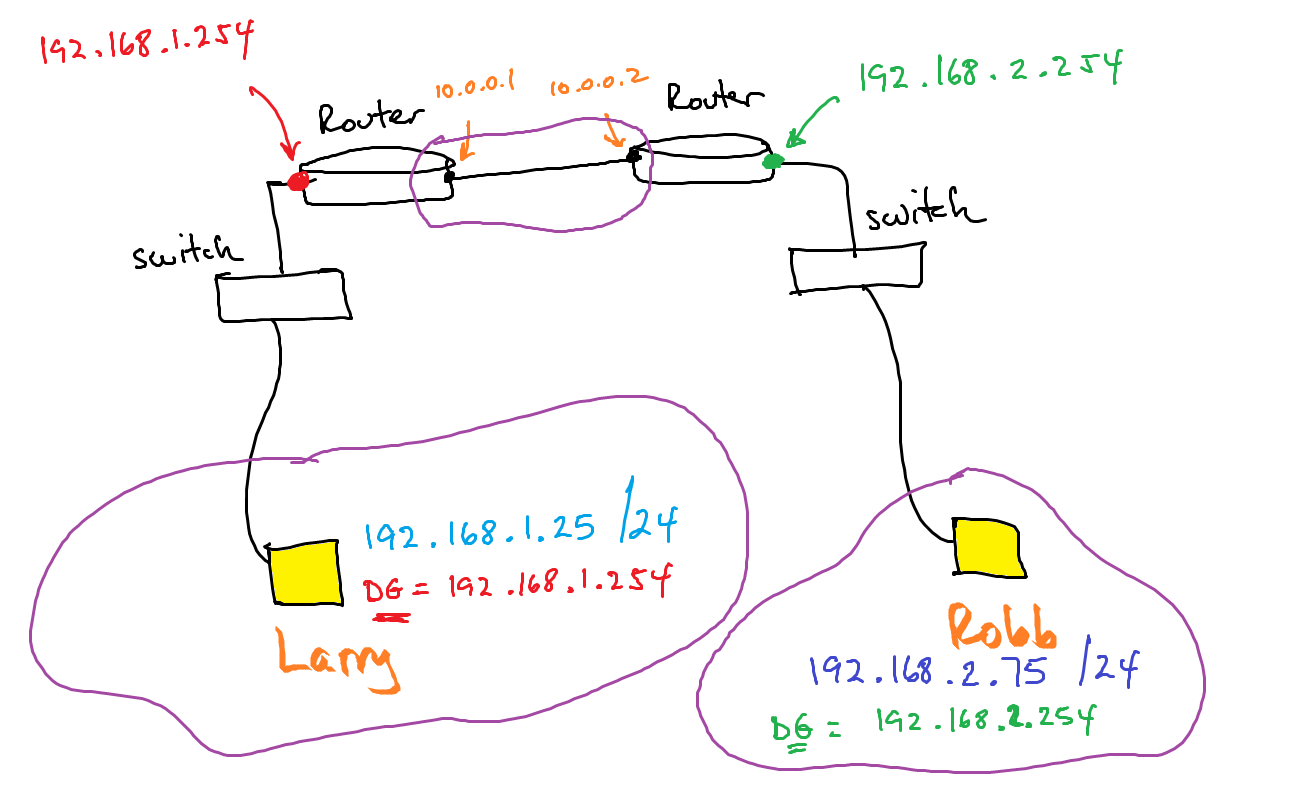 192.168.1.254
Router
10.0.0.1
10.0.0.2
Router
192.168.2.254
switch
switch
192.168.1.25 /24
DG = 192.168.1.254
Larry
Robb
192.168.2.75 /24
DG = 192.168.2.254